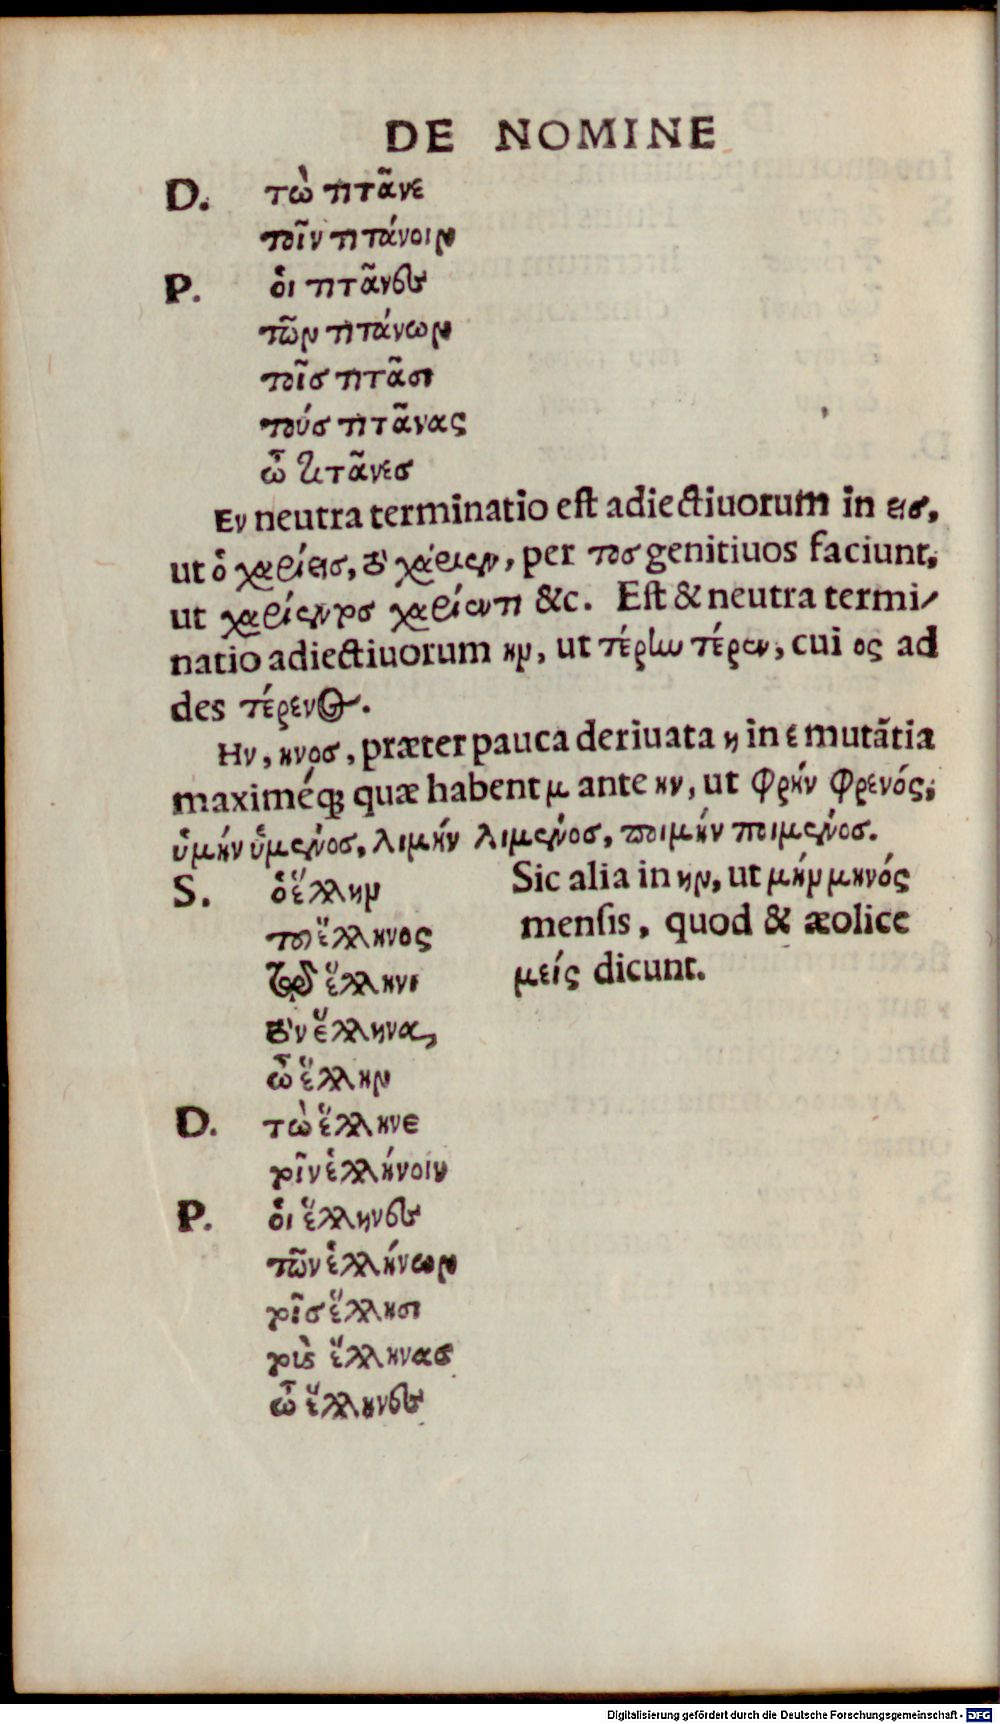 DE NOMINE
D. τὼ τιτᾶνε
τοῖν τιτάνοιν
P. ὁι τιτᾶνες
τῶν τιτάνων
τοῖσ τιτᾶσι
τούσ τιτᾶνας
ὦ τιτᾶνεσ
Εν neutra terminatio eſt adiectiuorum in εισ,
ut ὁ χαρίεισ, τὸ χάριεν, per τοσ genitiuos faciunt,
ut χαρίεντοσ χαρίεντι &c. Eſt & neutra termi/
natio adiectiuorum ην, ut τέρην τέρεν, cui ος ad
des τέρενος.
Ην, ηνοσ, præter pauca deriuata η in ε mutãtia
maximéq; quæ habent μ ante ην, ut φρήν φρενός,
ὑμήν ὑμενοσ, λιμήν λιμένοσ, ποιμήν ποιμένοσ.
S. ὁ ἕλλην
του ἕλληνος
τῷ ἕλληνι
τὸν ἕλληνα,
ὦ ἕλλην
Sic alia in ην, ut μήν μηνός
menſis, quod & æolice
μείς dicunt.
D. τὼ ἕλληνε
τοῖν ἑλλήνοιν
P. ὁι ἕλληνες
τῶν ἑλλήνων
τοῖσ ἕλλησι
τοὺς ἕλληνασ
ὦ ἕλληνες
Digitalisierung gefördert durch die Deutsche Forschungsgemeinschaft - DFG